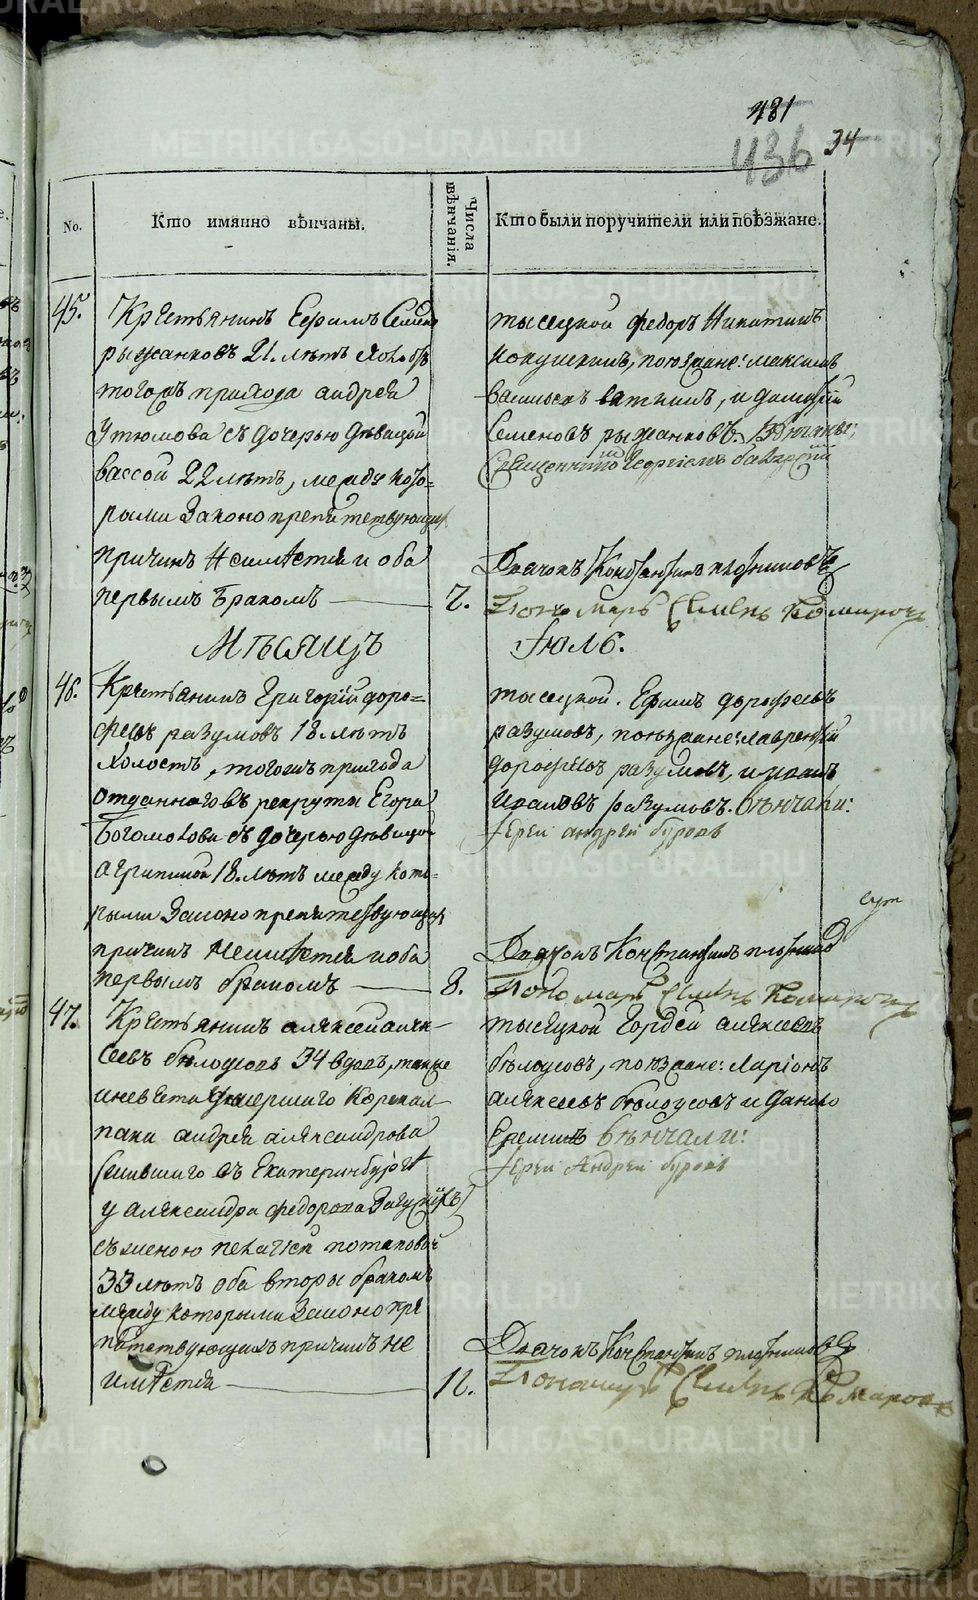 481
436
34
No.
Кто имянно вѣнчаны.
Числа вѣнчанія.
Кто были поручители или поѣзжане.
45.
Крестьянинъ Ефимъ Семено
рыжанковъ 21 лѣтъ
тогожъ прихода андрея
Утюмова съ дочерью дѣвицой
вассой 22 лѣтъ, между кото=
рыми Законо препятствующих
причинъ Неимѣется и оба
первымъ бракомъ
7.
тысецкой федоръ Никитинъ
кокушкинъ, поѣзжане: максимъ
Васильевъ вяткинъ, и
Семеновъ рыжанковъ. Вѣнчалъ:
Священникъ Георгій
Дьячокъ Константинъ плотниковъ
Пономарь Семенъ Комаровъ
Мѣсяцъ
Іюль.
46.
Крестьянинъ Григорій доро=
феевъ разумовъ 18 лѣтъ
Холостъ, тогожъ прихода
отданнаго въ рекруты Егора
Богомолова съ дочерью дѣвицой
агрипиной 18 лѣтъ между кото=
рыми Законо препятствующих
причинъ Неимѣется и оба
первымъ бракомъ
8.
тысецкой. Ефимъ дорофеевъ
разумовъ, поѣзжане: лаврентій
дорофѣевъ разумовъ, и иванъ
Ивановъ разумовъ. вѣнчали:
Іерей андрей буровъ
Дьячокъ Константинъ плотников
Пономарь Семенъ Комаровъ
47.
Крестьянинъ алексей алек-
сеевъ бѣлоусовъ 34 вдовъ, также
и невеста умершаго
андрея александрова
бывшаго въ Екатеринбурге
у александра федорова
съ женою пелагіей потаповой
33 лѣтъ оба вторы бракомъ
между которыми Законо пре
пятствующихъ причинъ не
имѣется
12.
тысяцкой Гордей алексеевъ
бѣлоусовъ, поѣзжане: Ларіонъ
алексеевъ бѣлоусовъ и данило
Ереминъ вѣнчали:
Іерей Андрей буровъ
Дьячокъ Константинъ плотниковъ
Пономарь Семенъ Комаровъ
METRIKI.GASO-URAL.RU